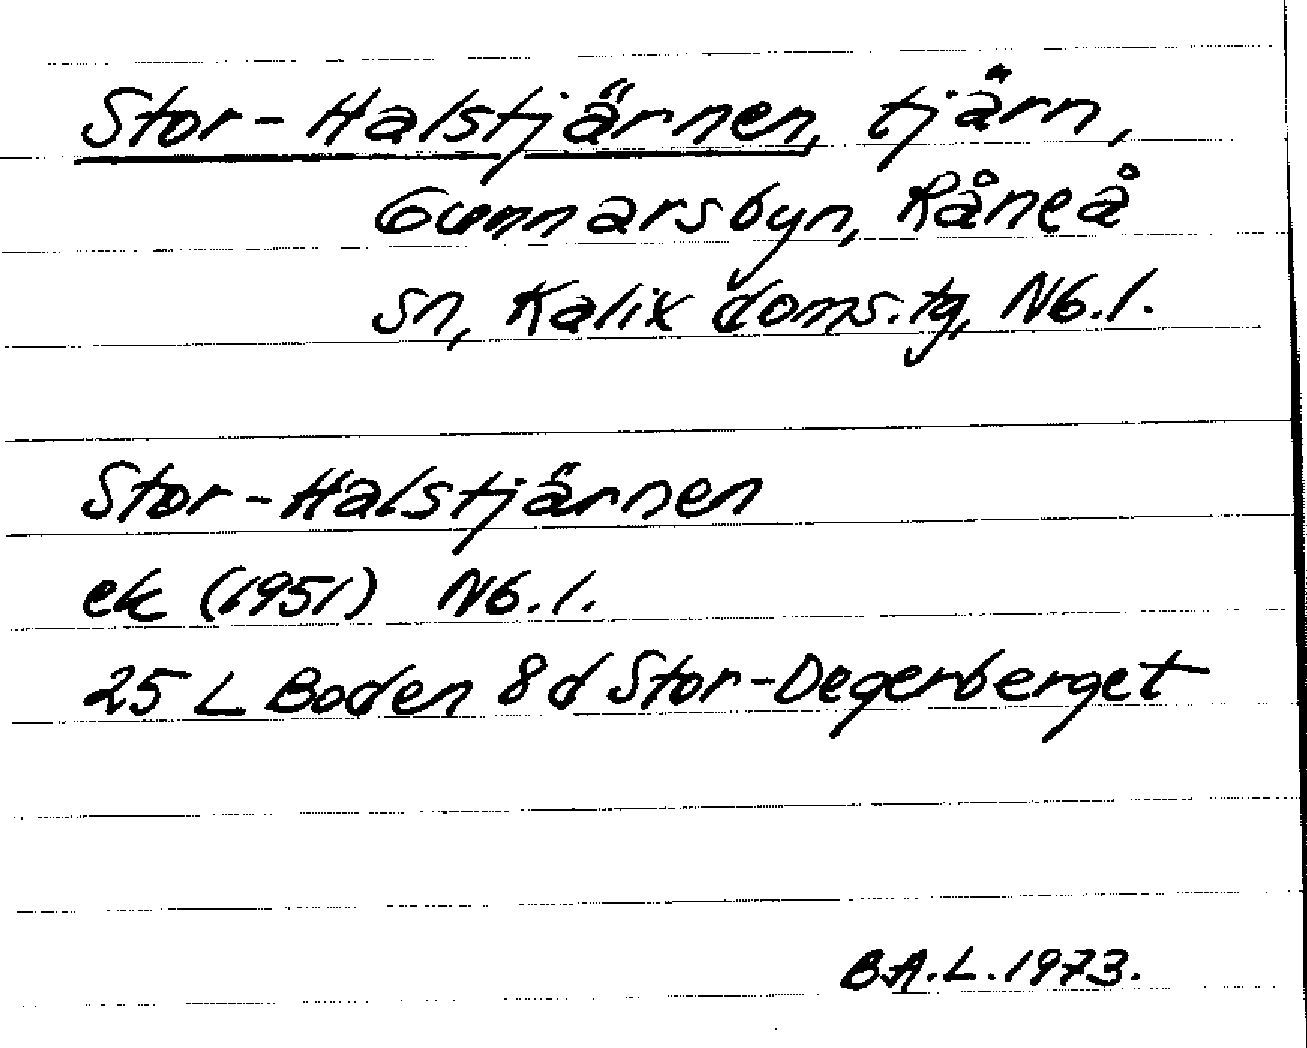 Stor-Halstjärnen, tjärn,
Gunnarsbyn, Råneå
sn, Kalix doms.tg, Nb.l.
Stor-Halstjärnen
ek (1951) Nb.l.
25 L Boden 8d Stor-Degerberget
B.A.L. 1973.